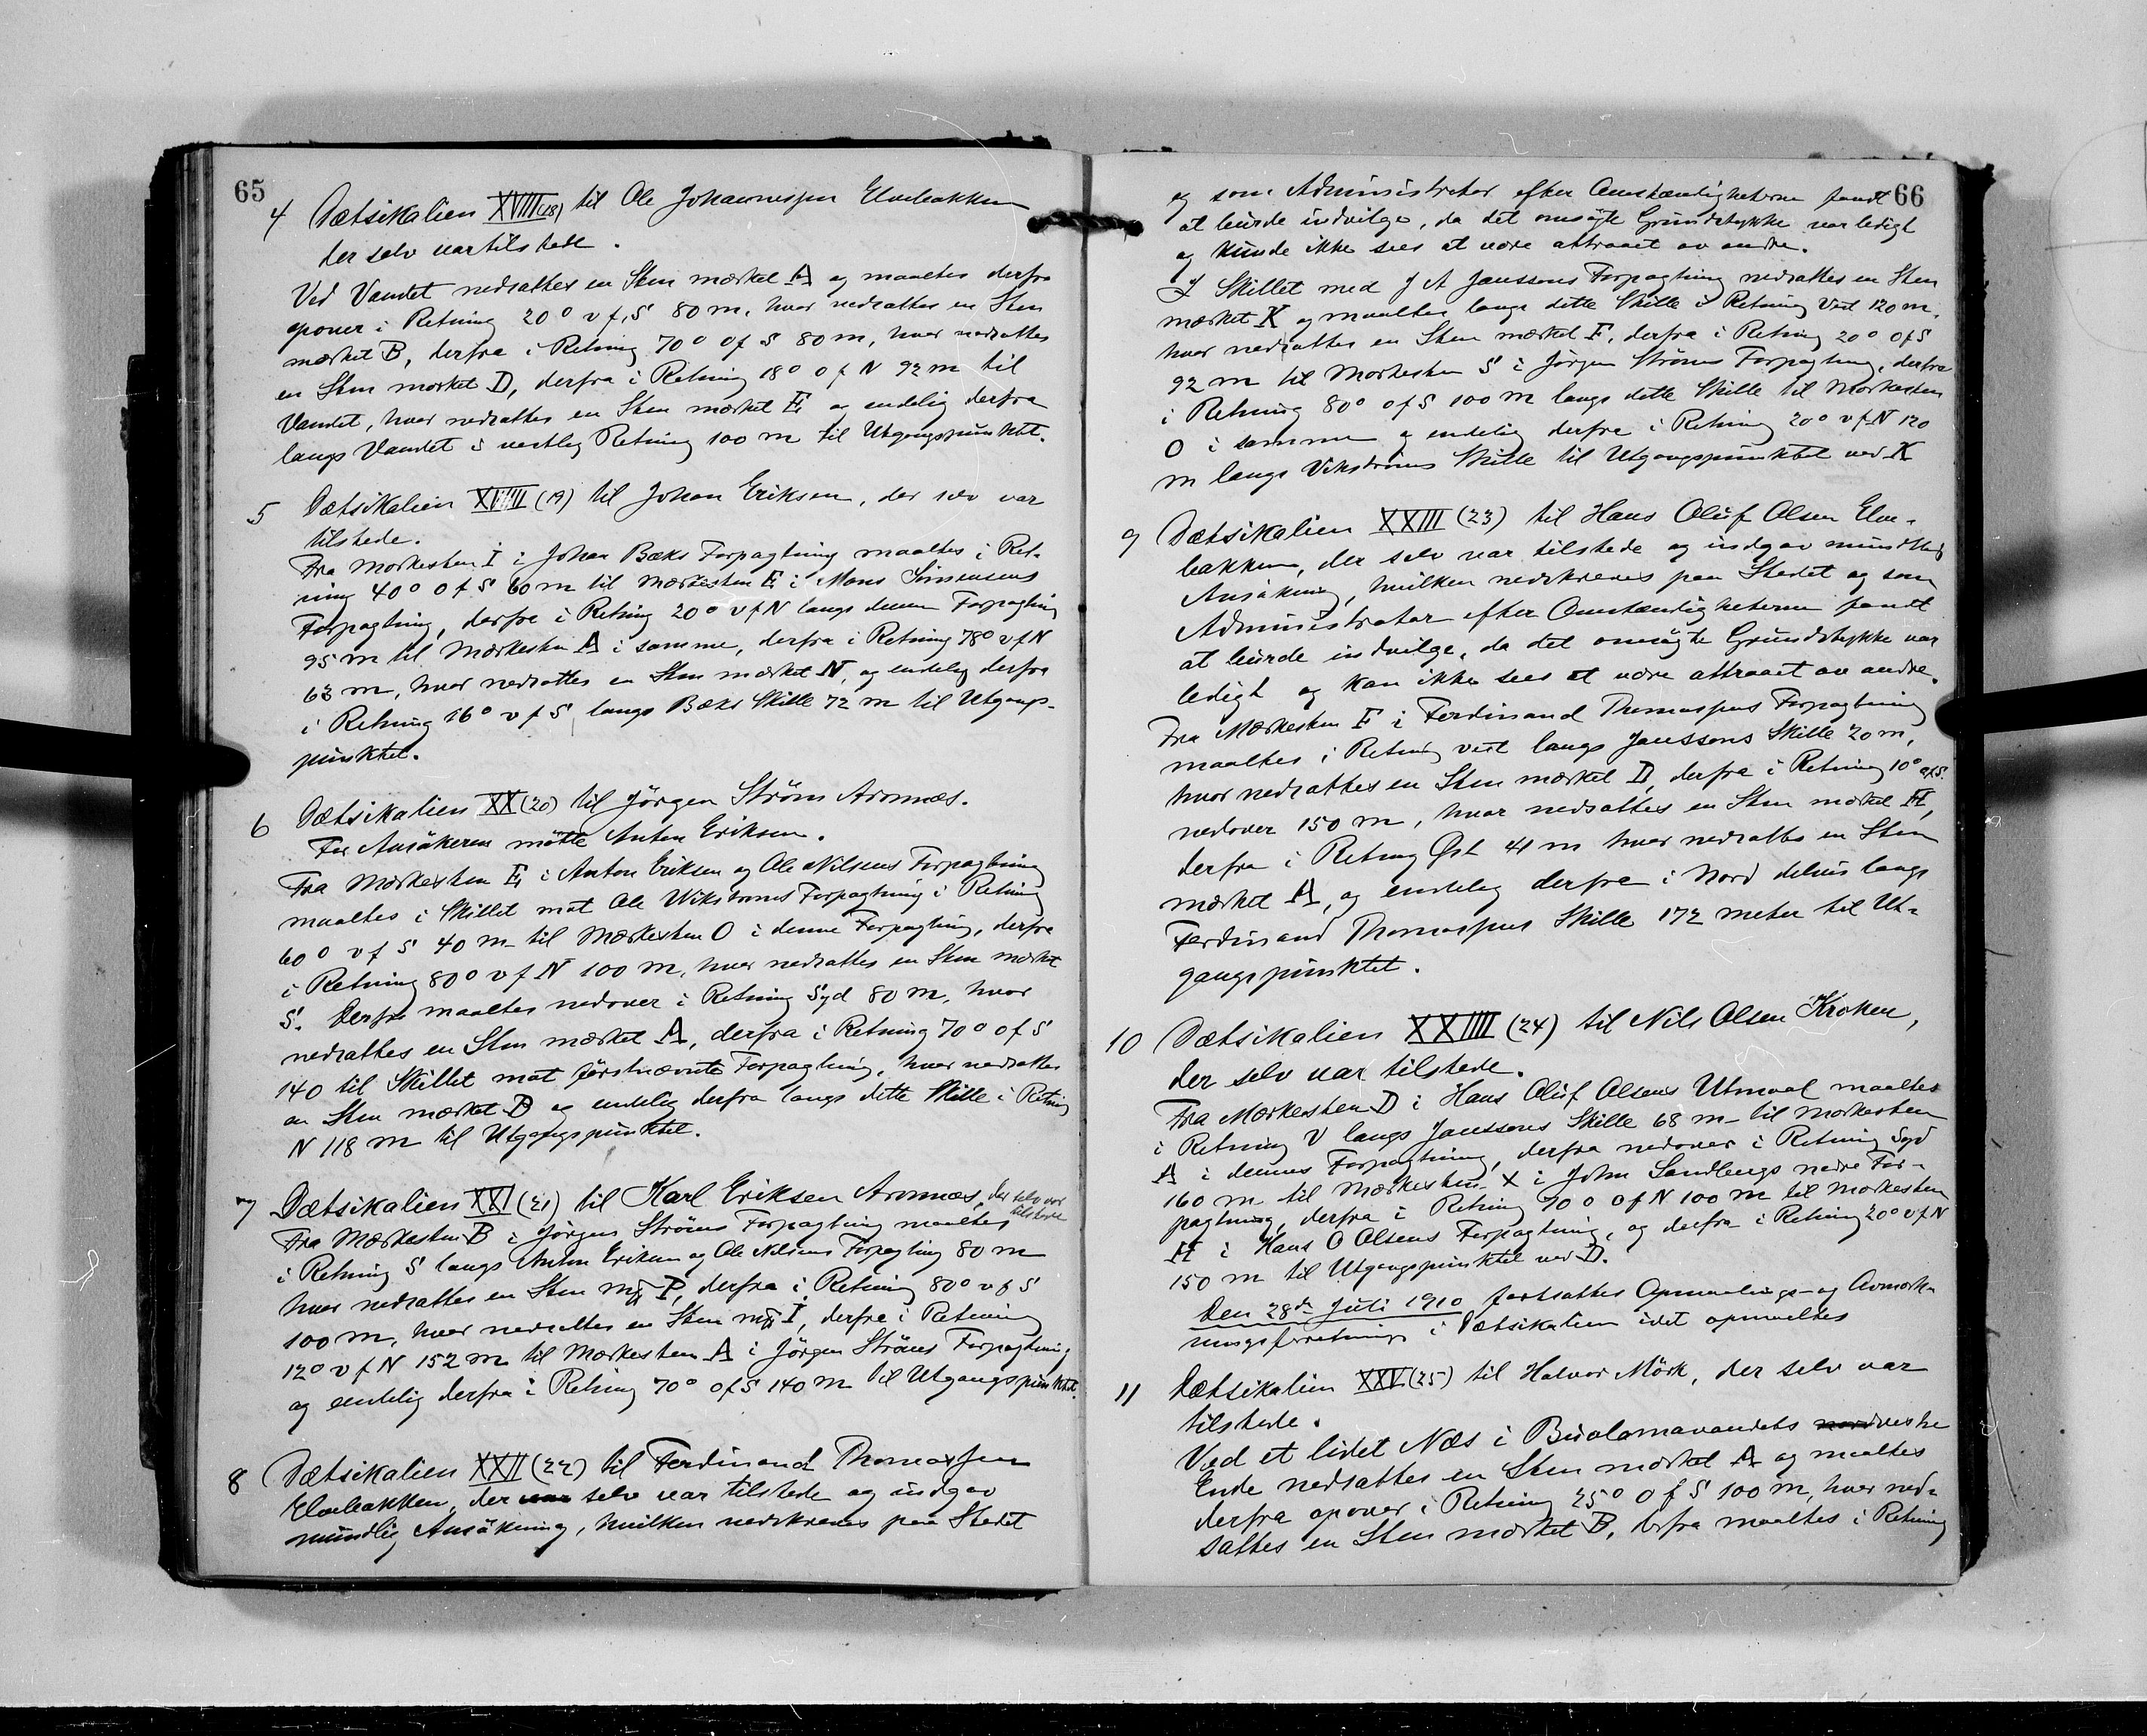 65
4 Dætsikalien XVIII (18) til Ole Johannessen Elvebakken
der selv var tilstede.
Ved Vandet nedsattes en Sten mærket A og maaltes derfra
opover i Retning 20° v f S 80 m, hvor nedsattes en Sten
mærket B, derfra i Retning 70° o f S 80 m, hvor nedsattes
en Sten mærket D, derfra i Retning 18° o f N 92 m til
Vandet, hvor nedsattes en Sten mærket E og endelig derfra
langs Vandet i vestlig Retning 100 m til Utgangspunktet.
5 Dætsikalien XVIIII (19) til Johan Eriksen, der selv var
tilstede.
Fra Mærkesten I i Johan Bæks Forpagtning maaltes i Ret-
ning 40° o f S 60 m til Mærkesten E i Mons Simensens
Forpagtning, derfra i Retning 20° v f N langs denne Forpagtning
95 m til Mærkesten A i samme, derfra i Retning 78° v f N
63 m, hvor nedsattes en Sten mærket N, og endelig derfra
i Retning 16° v f S langs Bæks Skille 72 m til Utgangs-
punktet.
6 Dætsikalien XX (20) til Jörgen Ström Aronnæs.
For Ansökeren mötte Anton Eriksen.
Fra Mærkesten E i Anton Eriksen og Ole Nilsens Forpagtning
maaltes i Skillet mot Ole Wikströms Forpagtning i Retning
60° v f S 40 m til Mærkesten O i denne Forpagtning, derfra
i Retning 80° v f N 100 m, hvor nedsattes en Sten mærket
S. Derfra maaltes nedover i Retning Syd 80 m, hvor
nedsattes en Sten mærket A, derfra i Retning 70° o f S
140 til Skillet mot förstnævnte Forpagtning, hvor nedsattes
en Sten mærket B og endelig derfra langs dette Skille i Retning
N 118 m til Utgangspunktet.
7 Dætsikalien XXI (21) til Karl Eriksen Aronnæs, der selv var
tilstede
Fra Mærkesten B i Jörgen Ströms Forpagtning maaltes
i Retning S langs Anton Eriksen og Ole Nilsens Forpagtning 80 m
hvor nedsattes en Sten P, derfra i Retning 80° v f S
100 m, hvor nedsattes en Sten I, derfra i Retning
12° v f N 152 m til Mærkesten A i Jörgen Ströms Forpagtning
og endelig derfra i Retning 70° o f S 140 m til Utgangspunktet.
8 Dætsikalien XXII (22) til Ferdinand Thomassen
Elvebakken, der var selv var tilstede og indgav
mundlig Ansökning, hvilken nedskreves paa Stedet
66
og som Administrator efter Omstændigheterne fandt
at burde indvilge, da det omsögte Grundstykke var ledigt
og kunde ikke sees at være attraaet av andre.
I Skillet med J A Janssons Forpagtning nedsattes en Sten
mærket K og maaltes langs dette Skille i Retning Vest 120 m,
hvor nedsattes en Sten mærket F, derfra i Retning 20° o f S
92 m til Mærkesten S i Jörgen Ströms Forpagtning, derfra
i Retning 80° o f S 100 m langs dette Skille til Mærkesten
O i samme og endelig derfra i Retning 20° v f N 120
m langs Vikströms Skille til Utgangspunktet ved K
9 Dætsikalien XXIII (23) til Hans Oluf Olsen Elve-
bakken, der selv var tilstede og indgav mundtlig
Ansökning, hvilken nedskreves paa Stedet og som
Administrator efter Omstændigheterne fandt
at burde indvilge, da det omsögte Grundstykke var
ledigt og kan ikke sees at være attraaet av andre.
Fra Mærkesten F i Ferdinand Thomassens Forpagtning
maaltes i Retning vest langs Janssons Skille 20 m,
hvor nedsattes en Sten mærket D, derfra i Retning 10° o f S.
nedover 150 m, hvor nedsattes en Sten mærket H,
derfra i Retning Öst 41 m hvor nedsattes en Sten
mærket A, og endelig derfra i Nord delvis langs
Ferdinand Thomassens Skille 172 meter til Ut-
gangspunktet.
10 Dætsikalien XXIIII (24) til Nils Olsen Kroken,
der selv var tilstede.
Fra Mærkesten D i Hans Oluf Olsens Utmaal maaltes
i Retning V langs Janssons Skille 68 m til Mærkesten
A i dennes Forpagtning, derfra nedover i Retning Syd
160 m til Mærkesten X i John Sandbergs nedre For-
pagtning, derfra i Retning 70° o f N 100 m til Mærkesten
H i Hans O Olsens Forpagtning, og derfra i Retning 20° v f N
150 m til Utgangspunktet ved D.
Den 28de Juli 1910 fortsattes Opmaalings- og Avmærk-
ningsforretninge i Dætsikalien idet opmaaltes
11 Dætsikalien XXV (25) til Halvor Mörk, der selv var
tilstede.
Ved et lidet Næs i Buolamavandets nordvestre
Ende nedsattes en Sten mærket A og maaltes
derfra opover i Retning 25° o f S 100 m, hvor ned-
sattes en Sten mærket B, derfra maaltes i Retning